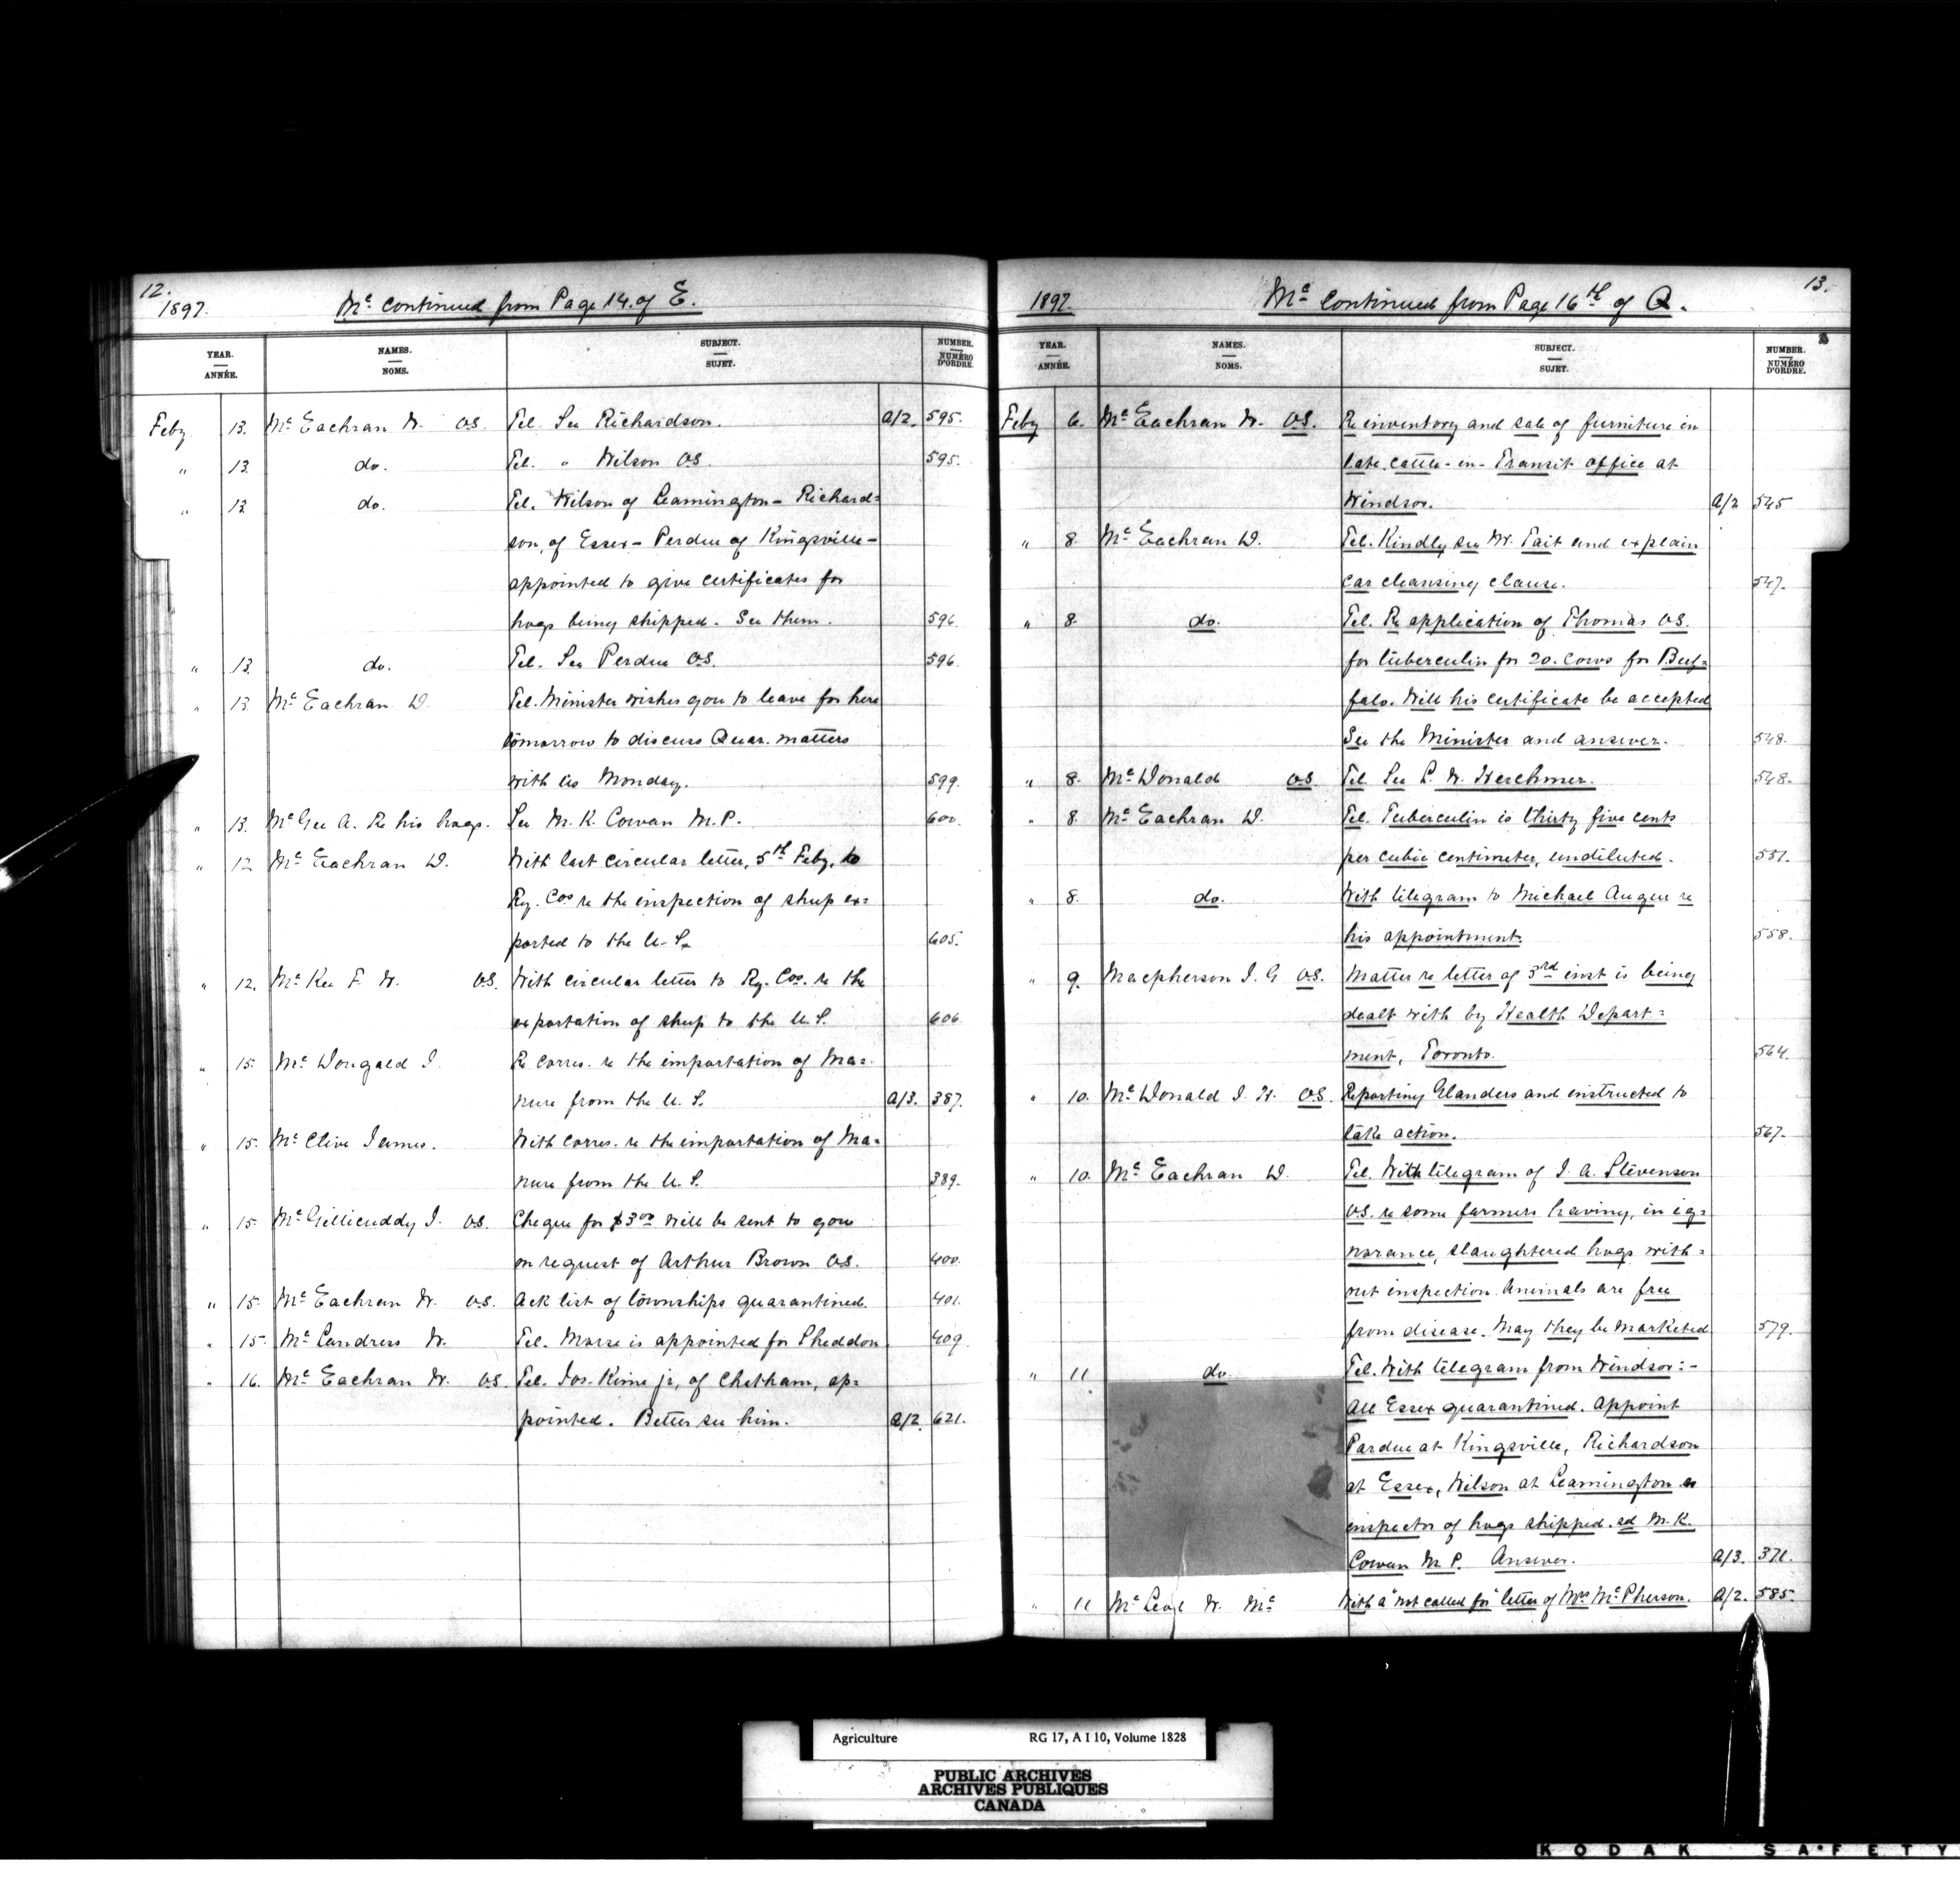 12.
1897.
Mc continued from Page 14. of E.
YEAR.
ANNÉE.
NAMES.
NOMS.
SUBJECT.
SUJET.
NUMBER.
NUMÉRO
D'ORDRE.
Feby 13. Mc Eachran W. V.S. Tel. See Richardson. A/2. 595.
" 13. do. Tel. " Wilson V.S. 595.
" 13 do. Tel. Wilson of Leamington - Richard=
son, of Essex - Perdue of Kingsville -
appointed to give certificates for
hogs being shipped. See them. 596.
" 13. do. Tel. See Perdue V.S. 596.
" 13. Mc Eachran D. Tel. Minister wishes you to leave for here
tomorrow to discuss Quar. matters
with us Monday. 599.
" 13. McGee A. Re his hogs. See M. K. Cowan M.P. 600.
" 12 Mc Eachran D. With last circular letter, 5th Feby, to
Ry. Cos re the inspection of sheep ex=
ported to the U.S. 605.
" 12. Mc Kee F. W. V.S. With circular letter to Ry. Cos. re the
exportation of sheep to the U.S. 606
" 15. Mc Dougald J. Re corres. re the importation of Ma=
nure from the U.S. A/3. 387.
" 15. Mc Clive James. With corres. re the importation of Ma=
nure from the U.S. 389.
" 15. McGillicuddy J. V.S. Cheque for $3.00 will be sent to you
on request of Arthur Brown V.S. 400.
" 15. Mc Eachran W. V.S. Ack list of townships quarantined. 401.
" 15. Mc Candress W. Tel. Morse is appointed for Sheddon 409.
" 16. Mc Eachran W. V.S. Tel. Jos. Kime jr, of Chatham, ap=
pointed. Better see him. A/2. 621.
13.
1897.
Mc continued from Page 16th of Q.
YEAR.
ANNÉE.
NAMES.
NOMS.
SUBJECT.
SUJET.
NUMBER.
NUMÉRO
D'ORDRE.
Feby 6. Mc Eachran W. V.S. Re inventory and sale of furniture in
late cattle-in-Transit office at
Windsor. A/2 545
" 8 Mc Eachran D. Tel. Kindly see Mr. Tait and explain
car cleansing clause. 547.
" 8. do. Tel. Re application of Thomas V.S.
for tuberculin for 20. cows for Buf=
falo. Will his certificate be accepted
See the Minister and answer. 548.
" 8. McDonald V.S. Tel See L. W. Herchmer. 548.
" 8. Mc Eachran D. Tel. Tuberculin is thirty five cents
per cubic centimeter, undiluted. 551.
" 8. do. With telegram to Michael Auger re
his appointment. 558.
" 9. Macpherson J. G V.S. Matter re letter of 3rd inst is being
dealt with by Health Depart=
ment, Toronto. 564.
" 10. Mc Donald J. H. V.S. Reporting Glanders and instructed to
take action. 567.
" 10. Mc Eachran D. Tel. With telegram of J. A. Stevenson
V.S. re some farmers having, in ig=
norance, slaughtered hogs with=
out inspection. Animals are free
from disease. May they be marketed 579.
" 11 do. Tel. With telegram from Windsor:-
All Essex quarantined. Appoint
Pardue at Kingsville, Richardson
at Essex, Wilson at Leamington as
inspector of hogs shipped. sd M. K.
Cowan M P. Answer. A/3. 371.
" 11 Mc W. Mc With a "not called for" letter of Mrs McPherson. A/2. 585.
Agriculture RG 17, A I 10, Volume 1828
PUBLIC ARCHIVES
ARCHIVES PUBLIQUES
CANADA
KODAK SAFETY